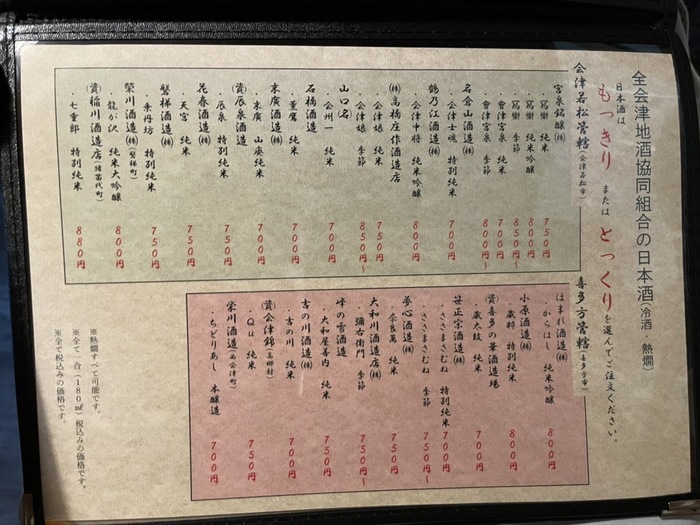 全会津地酒協同組合の日本酒(冷酒・熱燗)
日本酒は もっきり または とっくり を選んでご注文ください。
会津若松管轄(会津若松市)
宮泉銘醸㈱
・冩樂 純米 750円
・冩樂 純米吟醸 800円
・冩樂 季節 850円~
・會津宮泉 純米 700円
・會津宮泉 季節 800円~
名倉山酒造㈱
・会津士魂 特別純米 700円
鶴乃江酒造㈱
・会津中将 純米吟醸 800円
㈱高橋庄作酒造店
・会津娘 純米 750円
・会津娘 季節 850円~
山口(名)
・会州一 純米 700円
石橋酒造
・薫鷹 純米 700円
末廣酒造㈱
・末廣 山廃純米 700円
㈾辰泉酒造
・辰泉 特別純米 750円
花春酒造㈱
・天宮 純米 750円
磐梯酒造㈱
・乗丹坊 特別純米 750円
榮川酒造㈱(磐梯町)
・龍が沢 純米大吟醸 800円
㈾稲川酒造店(猪苗代町)
・七重郎 特別純米 880円
喜多方管轄(喜多方市)
ほまれ酒造㈱
・からはし 純米吟醸 800円
小原酒造㈱
・蔵粋 特別純米 800円
㈾喜多の華酒造場
・蔵太鼓 純米 700円
笹正宗酒造㈱
・ささまさむね 特別純米 700円
・ささまさむね 季節 750円~
夢心酒造㈱
・奈良萬 純米 750円
大和川酒造店㈱
・彌右衛門 季節 750円~
峰の雪酒造
・大和屋善内 純米 750円
吉の川酒造㈱
・吉の川 純米 700円
㈾会津錦(高郷村)
・Qu 純米 750円
栄川酒造㈱(西会津町)
・ちどりあし 本醸造 700円
※熱燗すべて可能です。
※全て一合(180㎖)税込みの価格です。
※全て税込みの価格です。